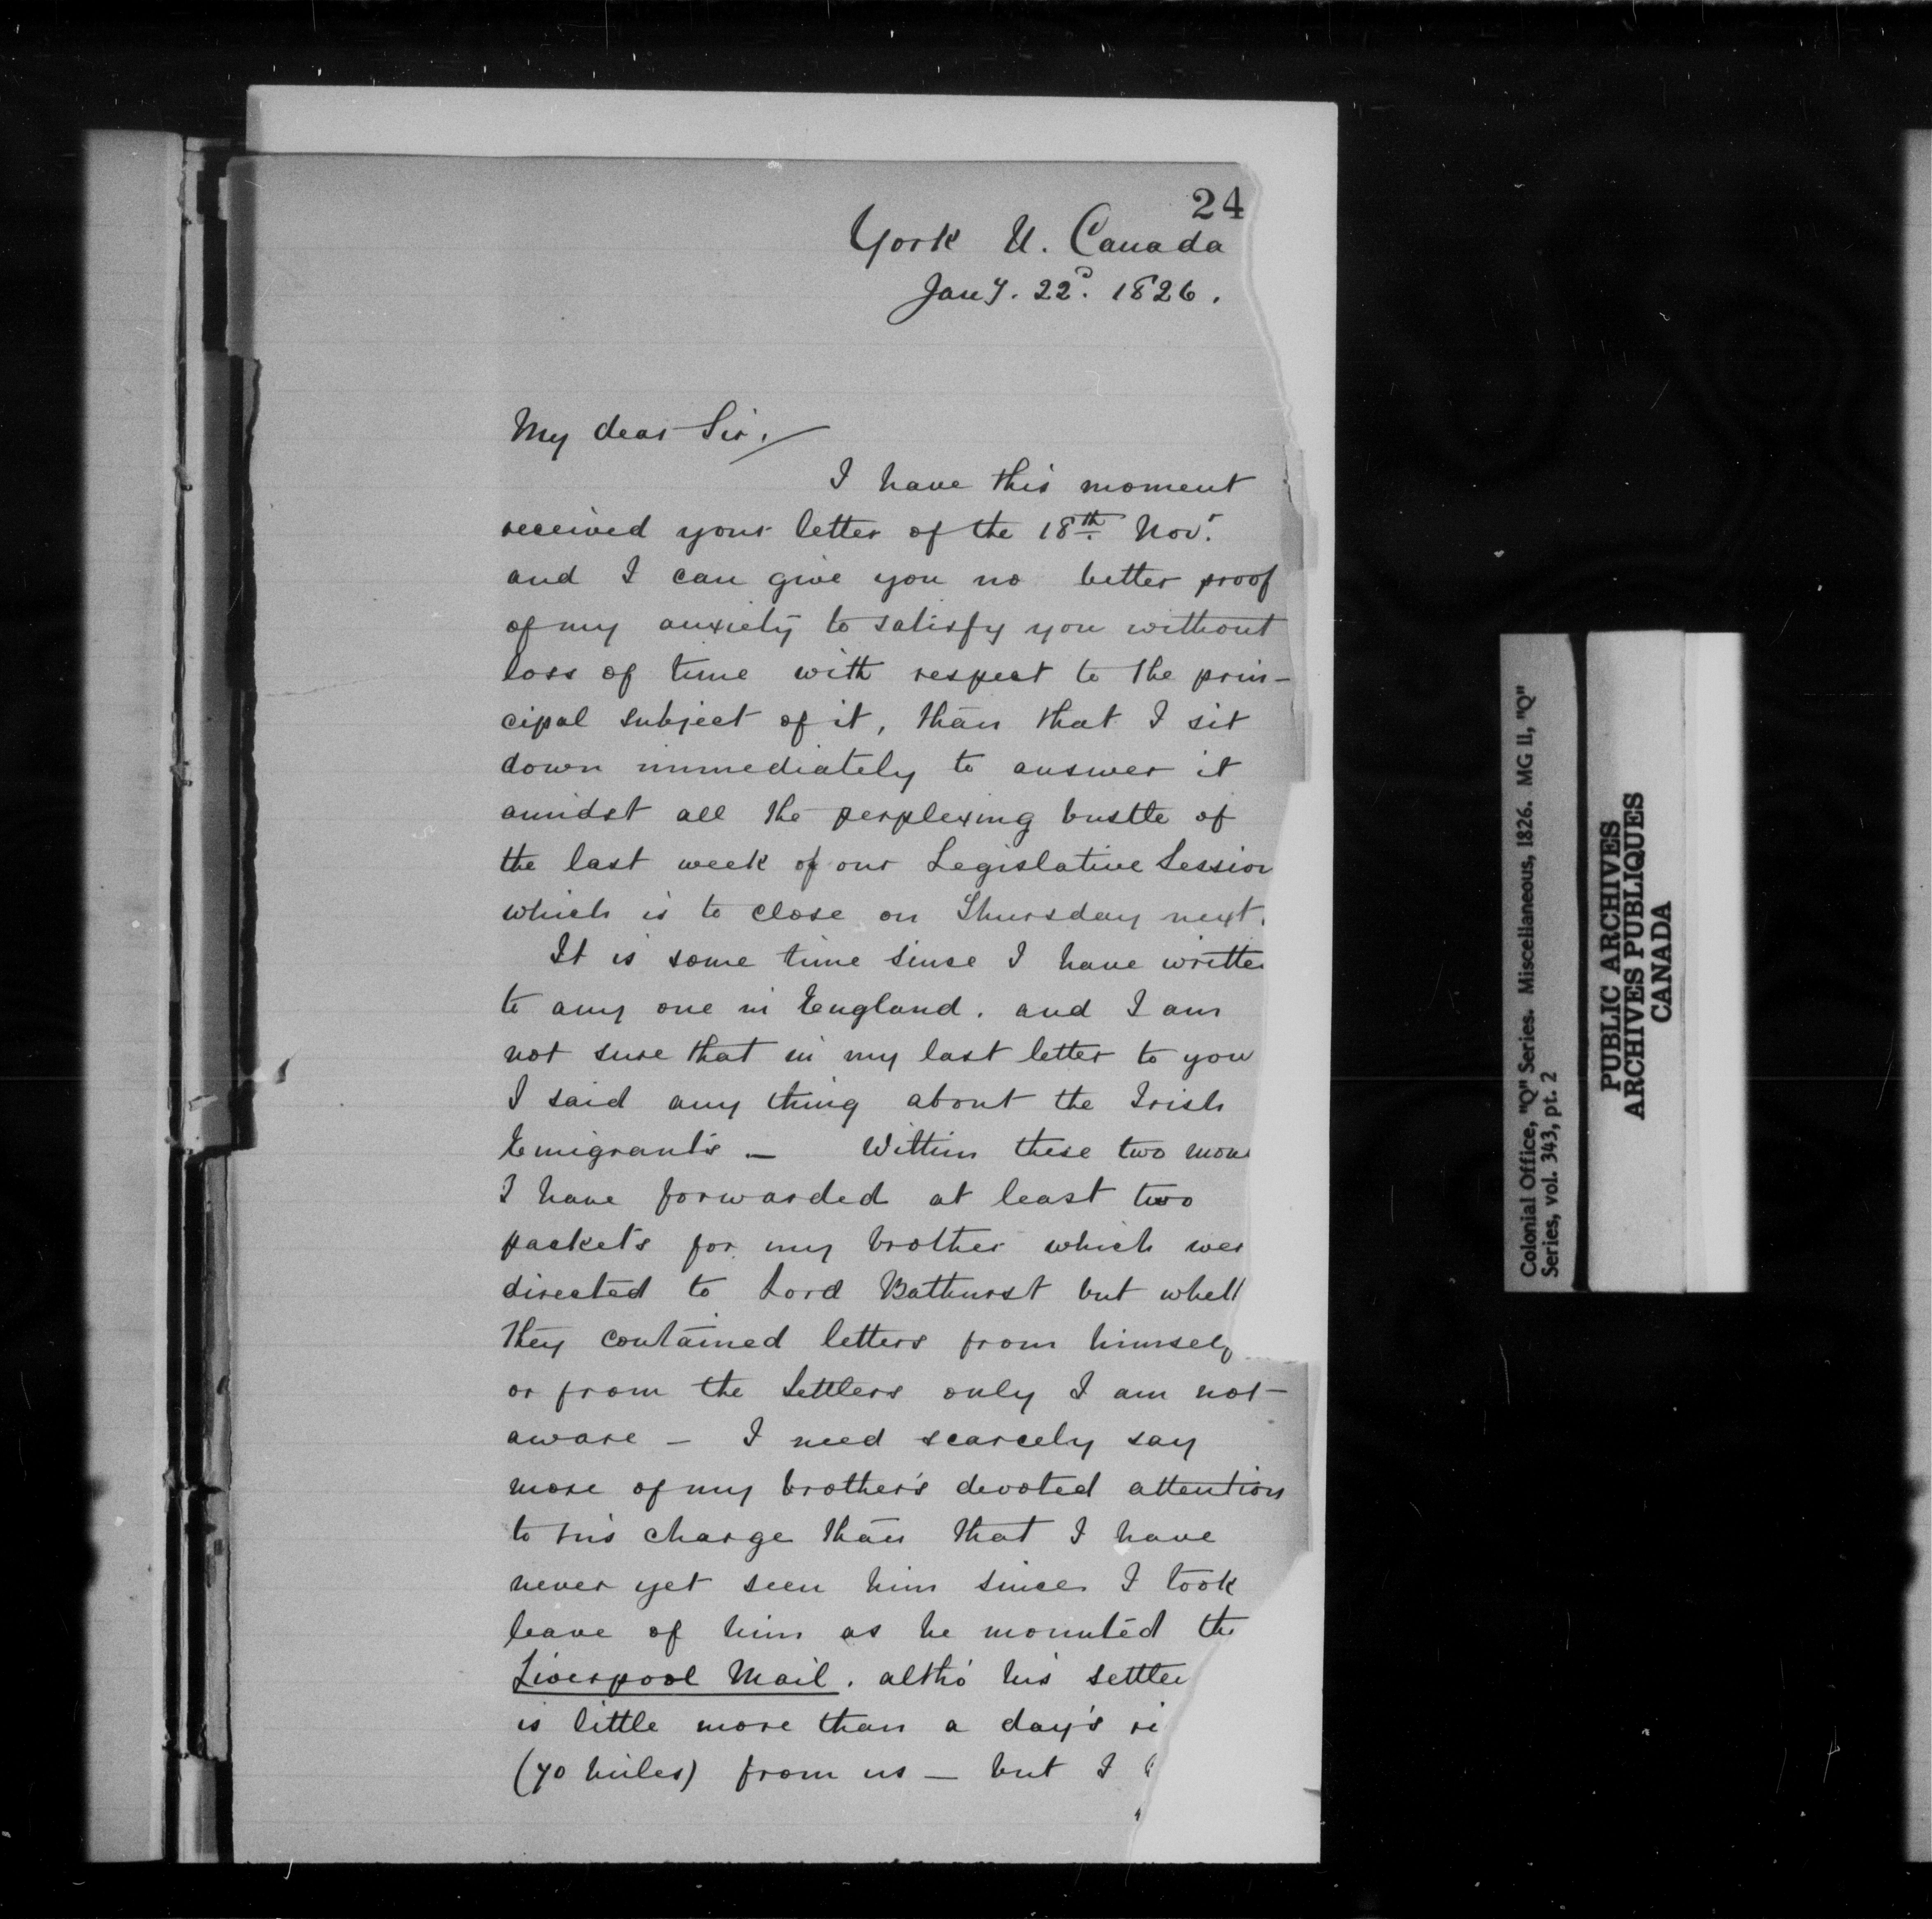 24
York U. Canada
Jany. 22d. 1826.
My dear Sir,
I have this moment
received your letter of the 18th. Novr.
and I can give you no better proof
of my anxiety to satisfy you without
loss of time with respect to the prin-
cipal subject of it, than that I sit
down immediately to answer it
amidst all the perplexing bustle of
the last week of our Legislative Session
which is to close on Thursday next.
It is some time since I have writte
to any one in England. and I am
not sure that in my last letter to you
I said any thing about the Irish
Emigrants — Within these two mon
I have forwarded at least two
packets for my brother which wer
directed to Lord Bathurst but wheth
they contained letters from himself
or from the Settlers only I am not
aware — I need scarcely say
more of my brother's devoted attention
to his charge than that I have
never yet seen him since I took
leave of him as he mounted the
Liverpool Mail. altho' his settle
is little more than a day's ri
(70 miles) from us — but I
Colonial Office, "Q" Series. Miscellaneous, 1826. MG 11, "Q"
Series, vol. 343, pt. 2
PUBLIC ARCHIVES
ARCHIVES PUBLIQUES
CANADA